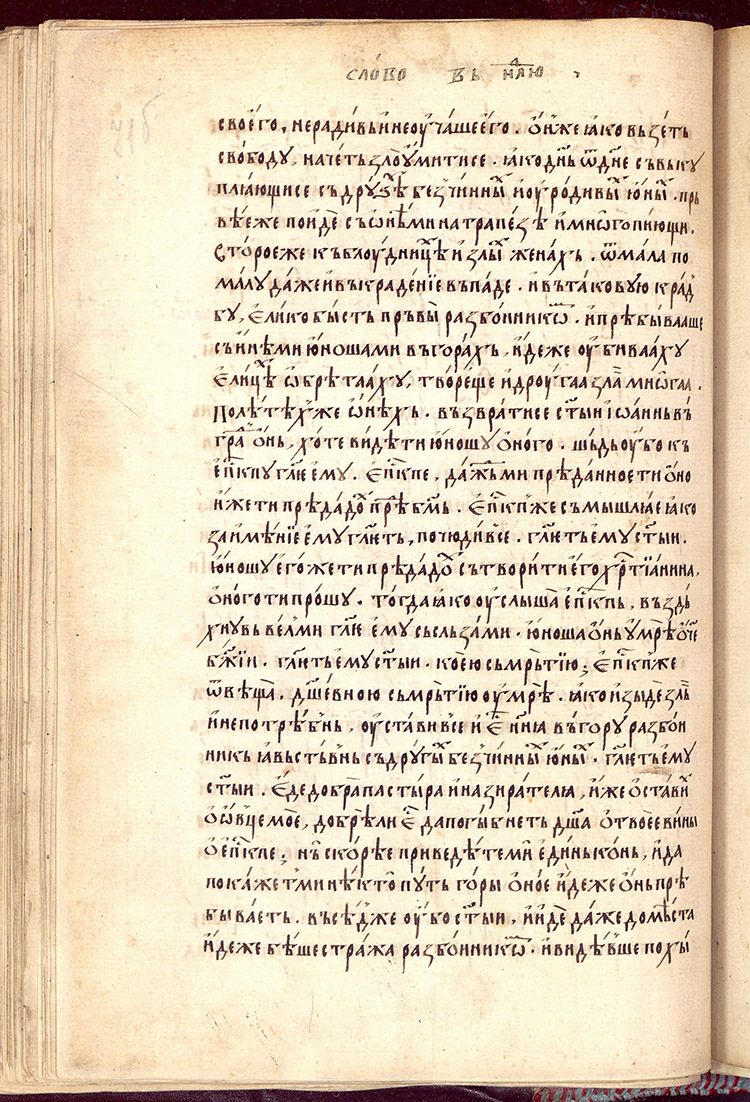 сло́во въ н҃лю ҂д҃ ·
своѐго, не ради́вь и҆ не оу҆чаше є҆го̀ . о҆́нже ꙗ҆ко възе́ть
свобо́ду, наче́ть ѕлоу҆мѝтисе . ꙗ҆ко дн҃ь ѿ дн҃е съвьку
плꙗ́ющисе съ дру́ѕѣ бе́зчинныⷨ и҆ оу҆ро́дивыⷨ ю҆́ныⷨ . прь
вѣ́еже по и҆дѐ съ ѡ҆нѣ́ми на трапе́зѣ и҆ мно́го пиющи .
Второ́еже къ блоу҆дни́цⷨѣ и҆ злыⷨ жена́хь . ѿ мала по
ма́лу да́же и҆ вь краде́нїе въпаде . и҆ въ та́ковую краⷣ
бу, є҆ли́ко бы́сть прь́выⷨ разбо́нникѡⷨ . и҆ прѣбыва́аше
съ и҆нѣ́ми ю҆́ношами въ гора́хъ, и҆де́же оу҆бива́аху
є҆ли́цⷯѣ ѡ҆брѣта́аху, тво́реще и҆ дроуга́а зла́ⷶ мнѡ́гаа .
По лѣ́тѣхже ѡ҆нѣ́хь . възвра́тисе ст҃ы́и і҆ѡа́ннь въ
граⷣ о҆́нь, хо́те ви́дѣти ю҆́ношу о҆́ного . шь́дь оу҆бо къ
є҆пⷭкпу гл҃ѥ є҆му . Є҆пⷭкпе, да́жⷣь ми прѣда́нное ти о҆но
и҆́же ти прѣда́доⷯ прⷣѣ бг҃мь . Є҆пⷭкпже съ мышлꙗ́ѥ ꙗ҆ко
за и҆мѣ́нїе є҆му гл҃ѥть, почюди́вⷭе . гл҃ѥть є҆му ст҃ыи .
Ю҆́ношу є҆го́же ти прѣда́доⷯ сътвори́ти є҆го̀ хрⷭтїа́нина,
о҆́ного ти про́шу . Тогда̀ ꙗ҆ко оу҆слы́ша є҆пⷭкпь, въздь
хнувь ве́лми гл҃ѥ є҆му съ слъза́ми . ю҆́ноша о҆́нь оу҆мрѣ̀ о҆́ч҃е
бж҃їи . гл҃ѥть є҆му ст҃ыи . ко́ею съмрь́тїю ; Є҆пⷭкпже
ѿвѣ́ща . дш҃е́вною съмрь́тїю оу҆мрѣ̀ . ꙗ҆ко и҆зы́де злⷧь
и҆ непотрѣ́бⷩь, оу҆стави́вⷭе и҆ є҆ⷭ нн҃ꙗ въ го́ру разбо́и
никь ꙗ҆вьстьвⷩь съ другы́ⷨ бе́зчинныⷨ ю҆́ныⷨ . гл҃ѥть є҆му
ст҃ыи . Є҆́де до́бра па́стыра и҆ на зира́телꙗ, и҆́же ѻ҆ста́виⷯ
о҆ѡ҆вцⷶе моѐ, до́брѣ ли є҆ⷭ да погы́бнеть дш҃а ѡ҆т твоѐе вины̀
о҆ є҆пⷭкпе ; нь̀ скорѣ́е приведѣ́те мѝ є҆ди́нь конь, и҆ да
пока́жеⷮ ми нѣ́кто пу́ть горы̀ о҆но́е и҆де́же о҆́нь прѣ
бы́ваеть . въсѣ́дже оу҆бо ст҃ыи, и҆ и҆дѐ да́же до мѣ́ста
и҆де́же бѣ́ше стра́жа разбо́нникѡⷨ . и҆ ви́дѣвше по хы́